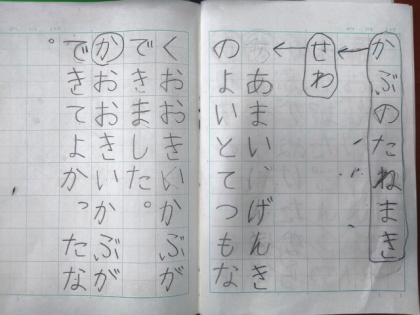 かぶのたねまき
せわ
あまい、げんき
のよいとてつもな
くおおきいかぶが
できました。
かおおきいかぶが
できてよかったな
。